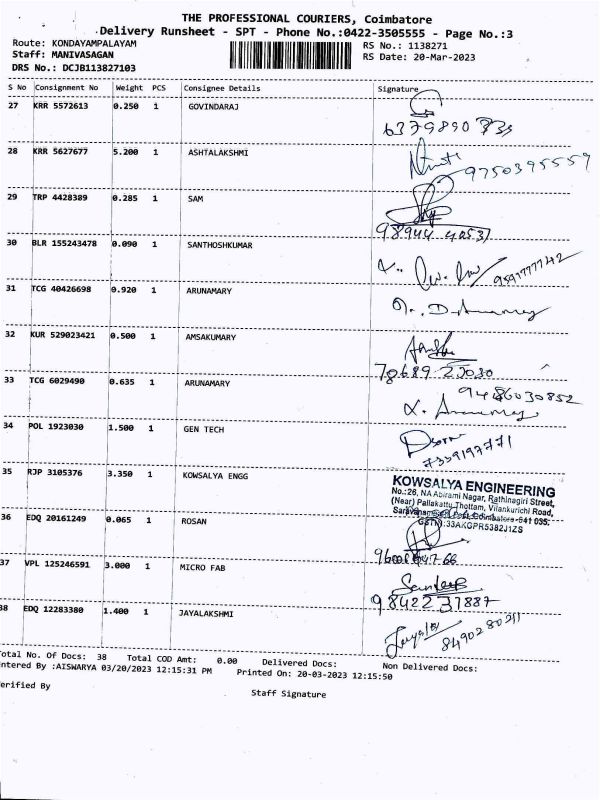 THE PROFESSIONAL COURIERS, Coimbatore
Delivery Runsheet - SPT - Phone No.:0422-3505555 - Page No.:3
Route: KONDAYAMPALAYAM
RS No.: 1138271
Staff: MANIVASAGAN
RS Date: 20-Mar-2023
DRS No.: DCJB113827103
S No Consignment No Weight PCS Consignee Details Signature
27 KRR 5572613 0.250 1 GOVINDARAJ
28 KRR 5627677 5.200 1 ASHTALAKSHMI
9750395559
29 TRP 4428389 0.285 1 SAM
30 BLR 155243478 0.090 1 SANTHOSHKUMAR
9597777742
31 TCG 40426698 0.920 1 ARUNAMARY
32 KUR 529023421 0.500 1 AMSAKUMARY
33 TCG 6029490 0.635 1 ARUNAMARY
9486030852
34 POL 1923030 1.500 1 GEN TECH
7339197771
35 RJP 3105376 3.350 1 KOWSALYA ENGG
KOWSALYA ENGINEERING
No.:26, NA Abirami Nagar, Rathinagiri Street,
(Near) Pallakattu Thottam, Vilankurichi Road,
Coimbatore-641 035.
GSTIN:33AKGPR5382J1ZS
36 EDQ 20161249 0.065 1 ROSAN
37 VPL 125246591 3.000 1 MICRO FAB
Sandeep
98422 31887
38 EDQ 12283380 1.400 1 JAYALAKSHMI
Total No. Of Docs: 38 Total COD Amt: 0.00 Delivered Docs: Non Delivered Docs:
ntered By :AISWARYA 03/20/2023 12:15:31 PM Printed On: 20-03-2023 12:15:50
erified By
Staff Signature